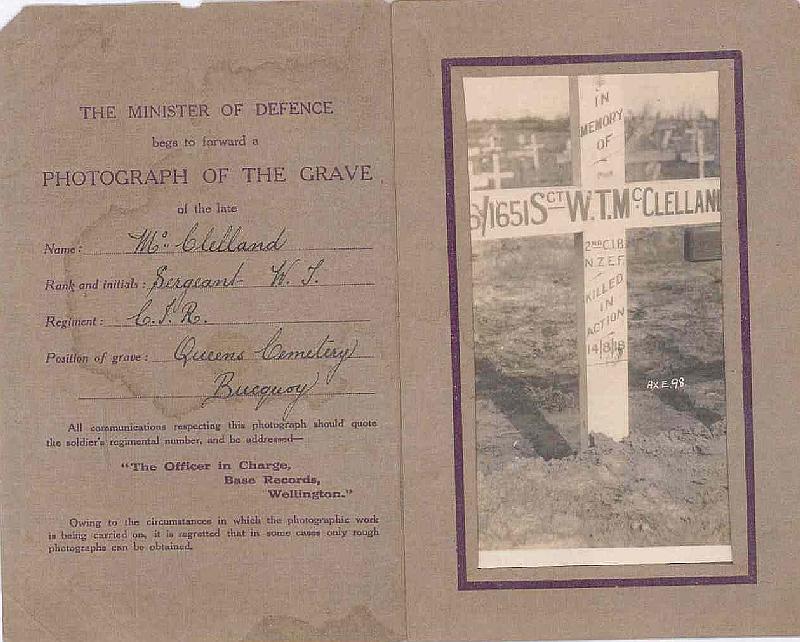 THE MINISTER OF DEFENCE
begs to forward a
PHOTOGRAPH OF THE GRAVE
of the late
Name: Mc Clelland
Rank and initials: Sergeant W. T.
Regiment: C.I.R.
Position of grave: Queens Cemetery
Bucquoy
All communications respecting this photograph should quote
the soldier's regimental number, and be addressed—
"The Officer in Charge,
Base Records,
Wellington."
Owing to the circumstances in which the photographic work
is being carried on, it is regretted that in some cases only rough
photographs can be obtained.
IN
MEMORY
OF
6/1651 SGT W.T. McCLELLAN
2ND C.I.B.
N.Z.E.F.
KILLED
IN
ACTION
14/8/18
AX.E.98